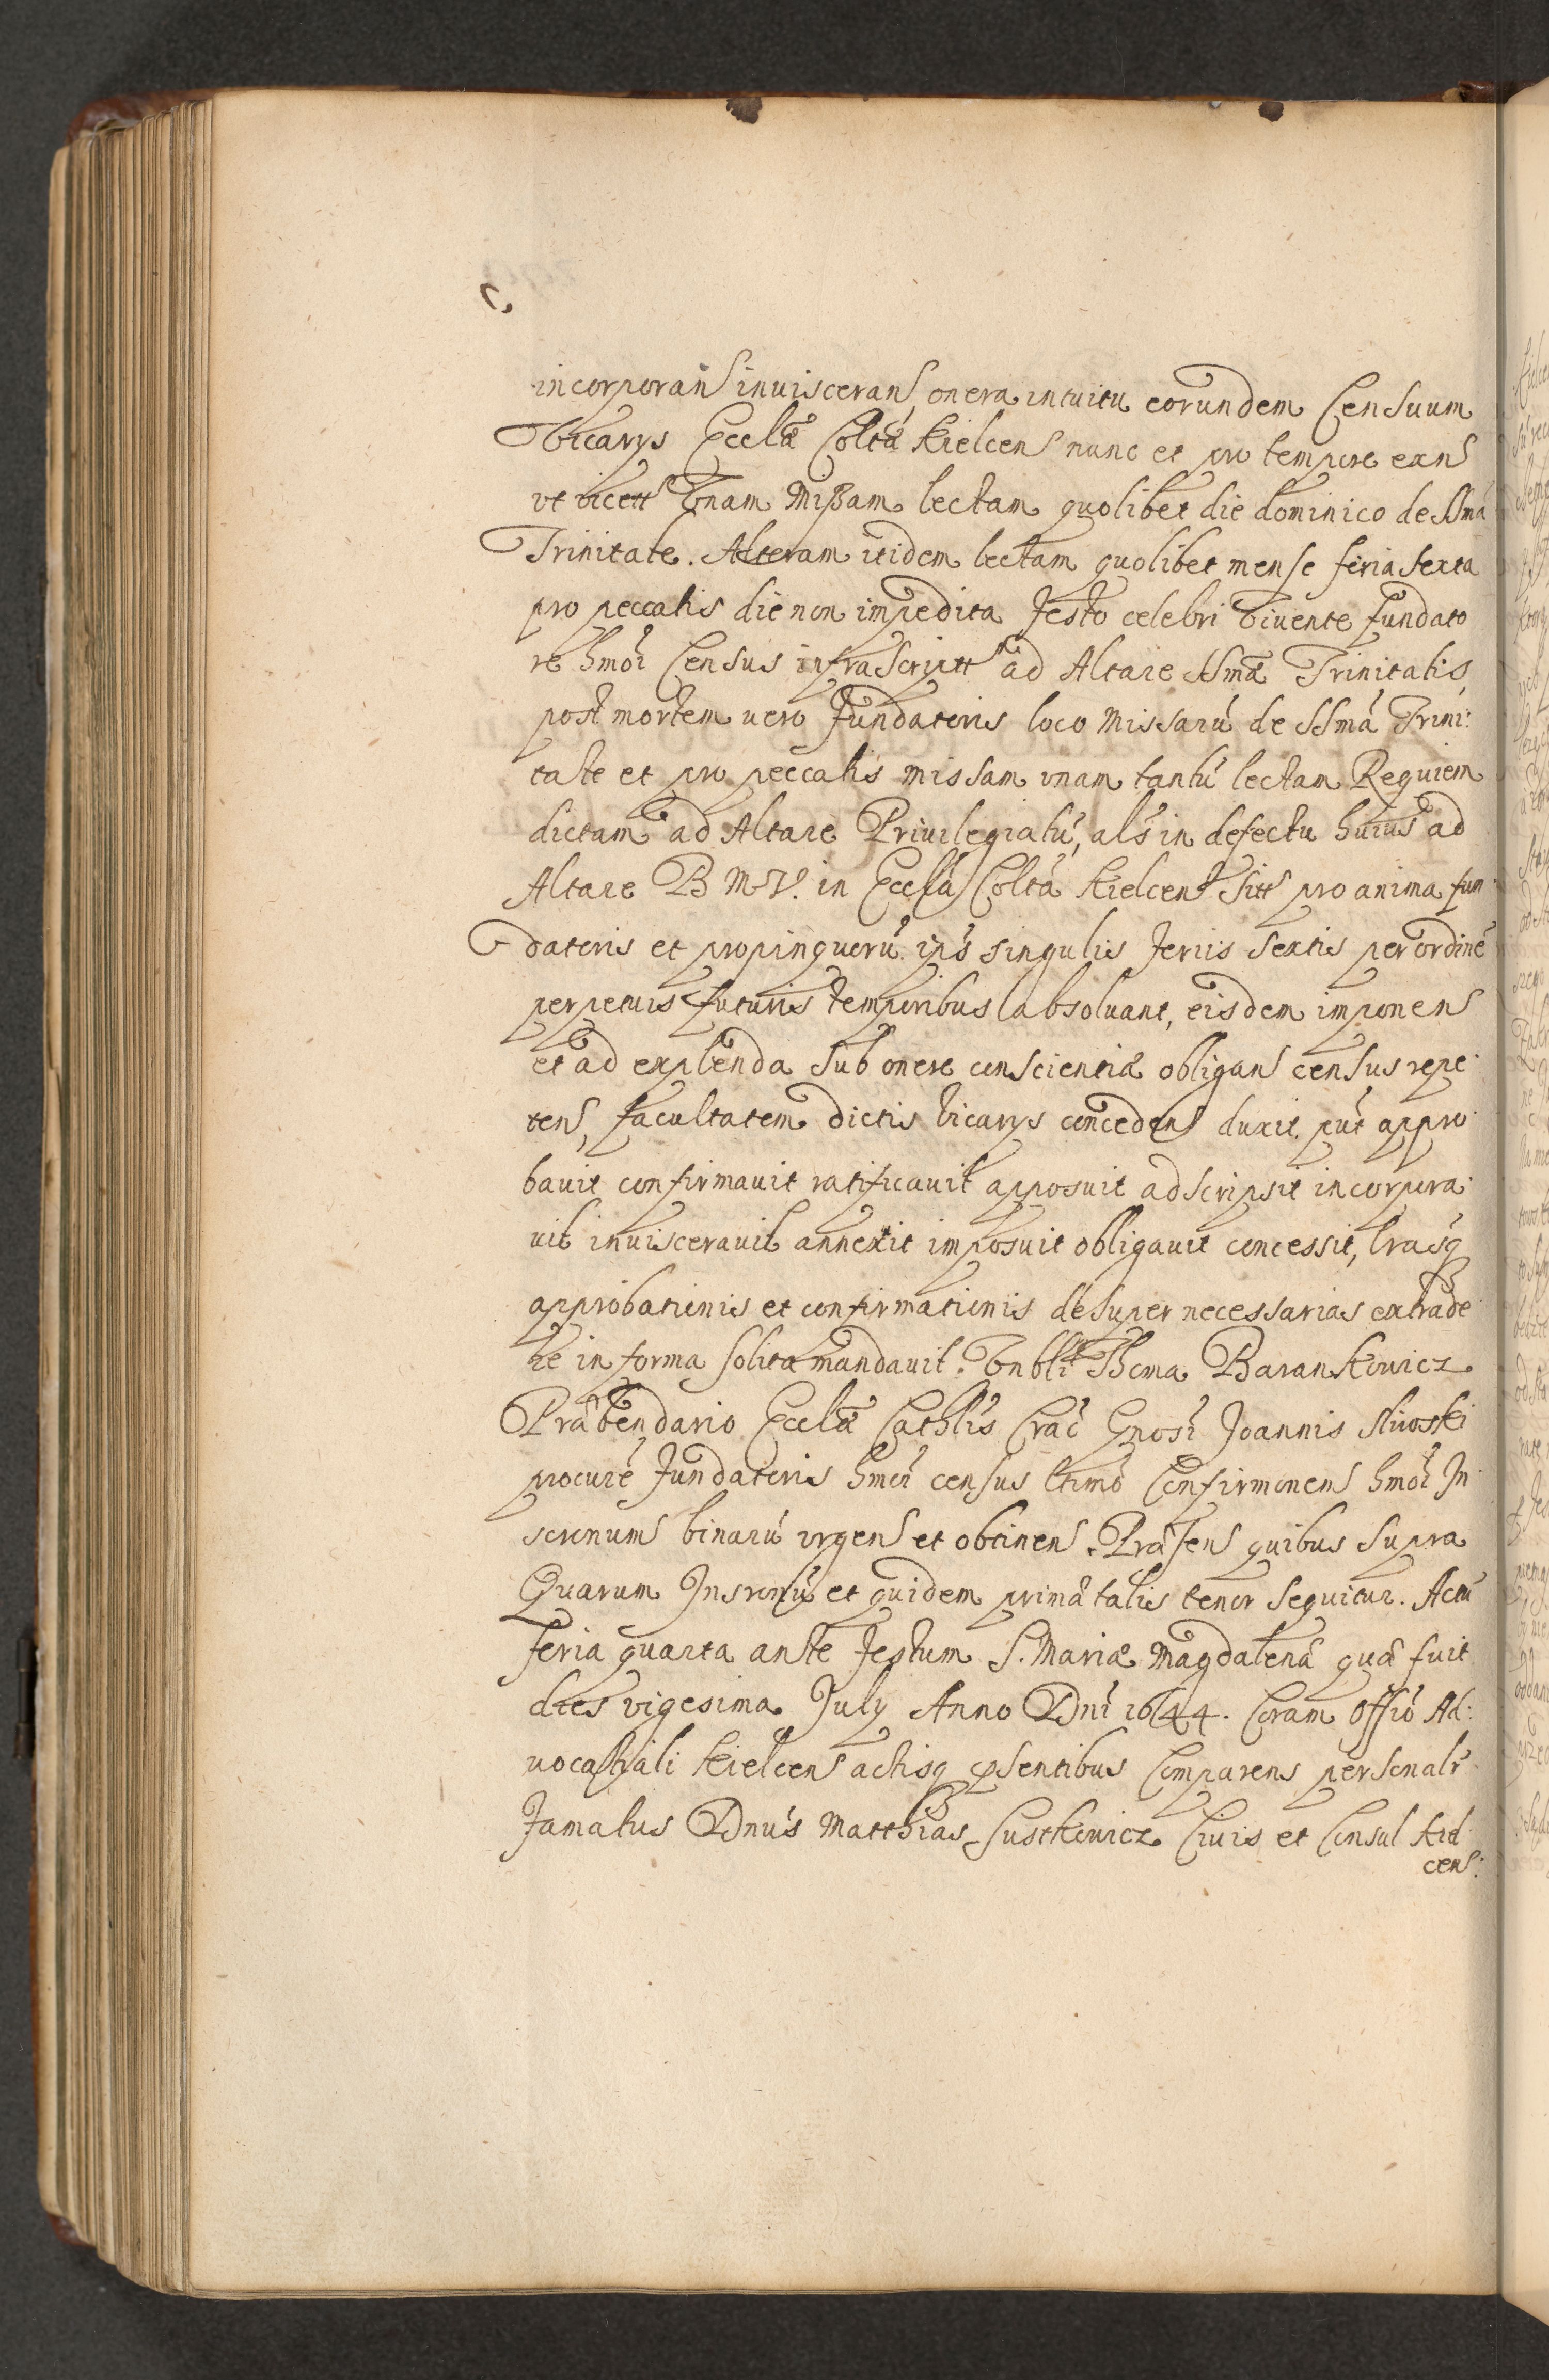 incorporans inviscerans, onera intuitu eorundem Censuum
Vicarys Ecclae Coltae Kielcens nunc et pro tempore exns
vt vicett Vnam Mißam lectam quolibet die dominico de SSma
Trinitate. Alteram itidem lectam quolibet mense feria sexta
pro peccatis die non impedita Festo celebri Vivente fundato
re hmoi Census infrascriptt ad Altare SSmae Trinitatis,
post mortem vero Fundatoris loco Missarū de SSmā Trini:
tate et pro peccatis missam unam tantū lectam Requiem
dictam ad Altare Privilegiatū, als in defectu huius ad
Altare B M V. in Ecclā Coltā Kielcens sitt pro anima fun
datoris et propinquorū ips singulis Feriis sextis per ordinē
perpetuis futuris temporibus absoluant, eisdem imponens
et ad explenda sub onere conscientiae obligans census repe
tens, facultatem dictis Vicarys concedens duxit, put appro
bavit confirmavit ratificavit apposuit adscripsit incorpora
vit invisceravit annexit imposuit obligavit concessit, lrasq
approbationis et confirmationis desuper necessarias extrade
re in forma solita mandavit. Vnbli Thoma Barankowicz
Praebendario Ecclae Cathlis Crac Gnosi Joannis Sliwoski
procure Fundatoris hmoi census ltimo Confirmonem hmoi In
scronums binarū urgens et obtinens. Praesens quibus supra
Quarum Insronū et quidem primā talis tenor sequitur. Actū
feria quarta ante Festum S. Mariae Magdalenā quā fuit
dies vigesima July Anno Dni 1644. Coram Offio Ad:
vocatiali Kielcens actisq psentibus Comparens personalr
Famatus Dnus Matthias Suskowicz Civis et Consul Kiel
cens: